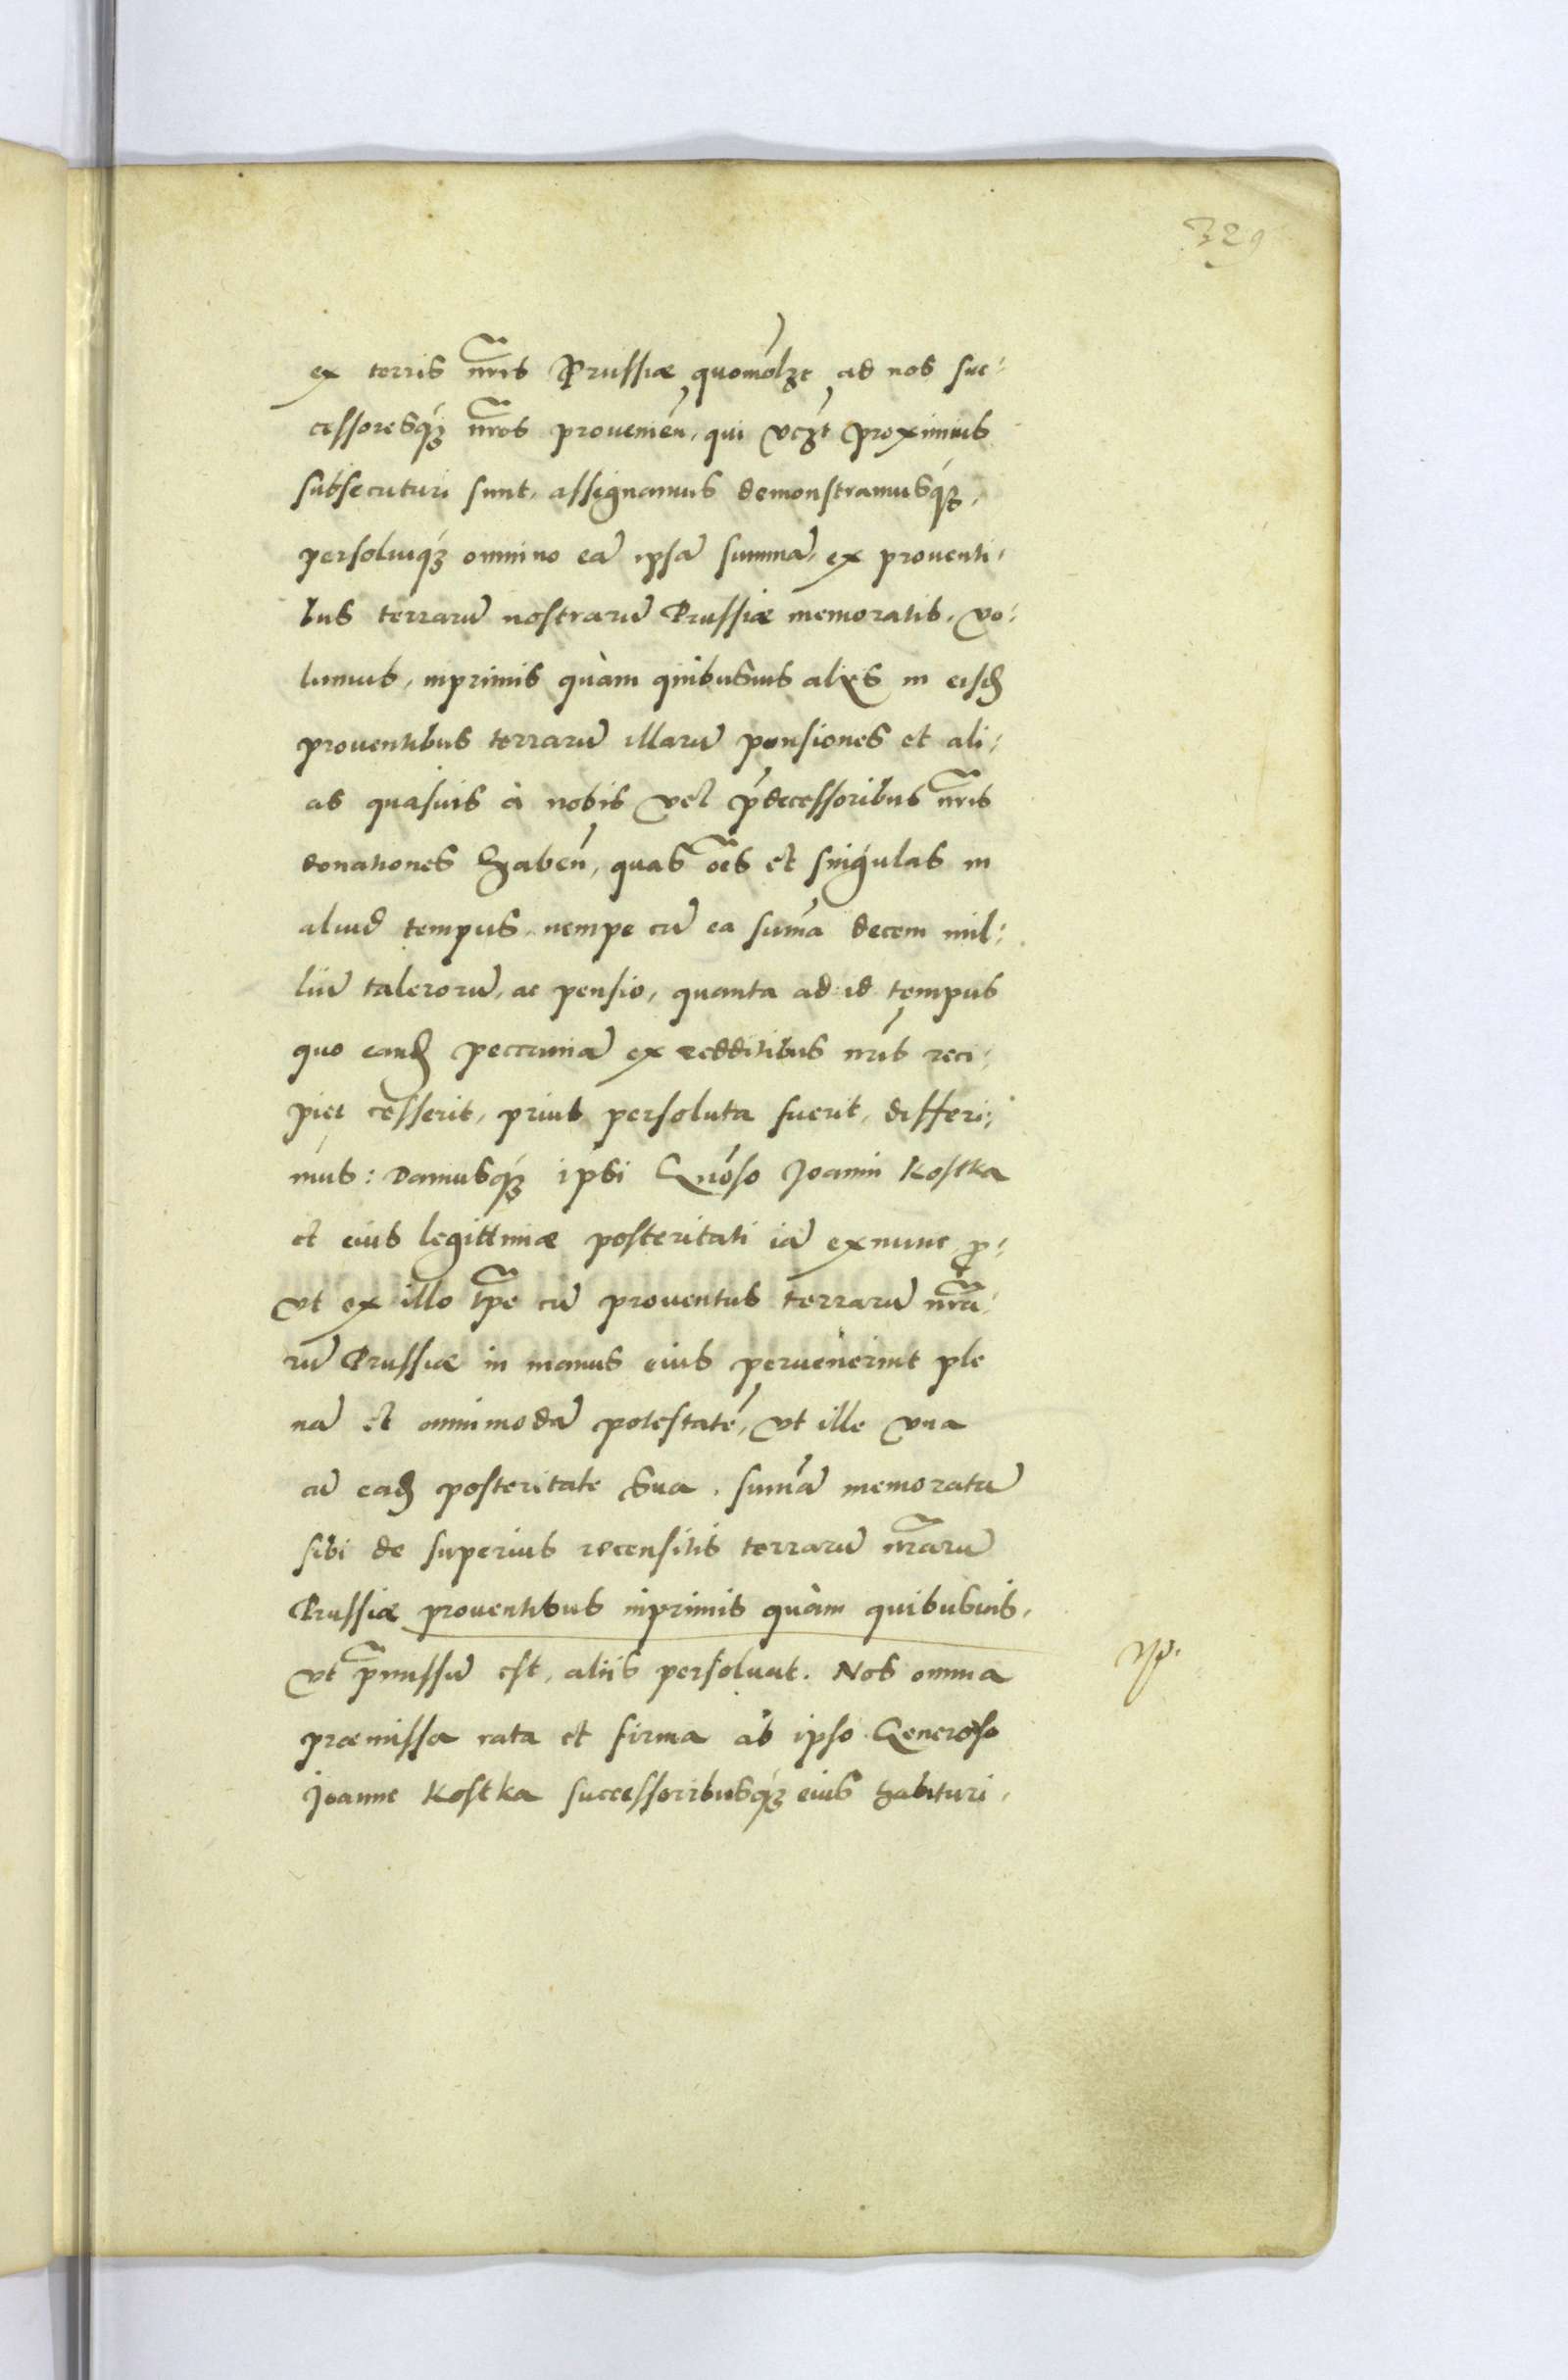 329
ex terris nr̃is Prussiæ quomõlꝫt ad nos suc:
cessoresq́ꝫ nr̃os prouenień, qui vcꝫt proximius
subsecuturi sunt, assignamus demonstramusq́ꝫ,
persoluiq́ꝫ omnino eã ipsã summã, ex prouenti:
bus terrarũ nostrarũ Prussiæ memoratis, vo:
lumus, inprimis quàm quibusuis alijs in eisđ
prouentibus terrarũ illarũ pensiones et ali:
as quasuis à nobis vel p̃decessoribus nr̃is
donationes habeń, quas oẽs et singulas in
aliud tempus, nempe cũ ea sum̃a decem mil:
liũ talerorũ, ac pensio, quanta ad id tempus
quo eanđ peccuniã ex redditibus nr̃is reci:
piet cesserit, prius persoluta fuerit, differi:
mus: Damusq́ꝫ ipsi Gñoso Joanni Kostka
et eius legittimæ posteritati iã exnunc ꝓ:
vt ex illo tp̃e cũ prouentus terrarũ nr̃a:
rũ Prussiæ in manus eius peruenerint ple
nã et omnimodã potestatẽ, vt ille vna
cũ eađ posteritate sua, sum̃ã memoratã
sibi de superius recensitis terrarũ nr̃arũ
Prussiæ prouentibus inprimis quàm quibusuis,
vt p̃missũ est, aliis persoluat. Nos omnia
præmissa rata et firma ab ipso Generoso
Joanne Kostka successoribusq́ꝫ eius habituri,